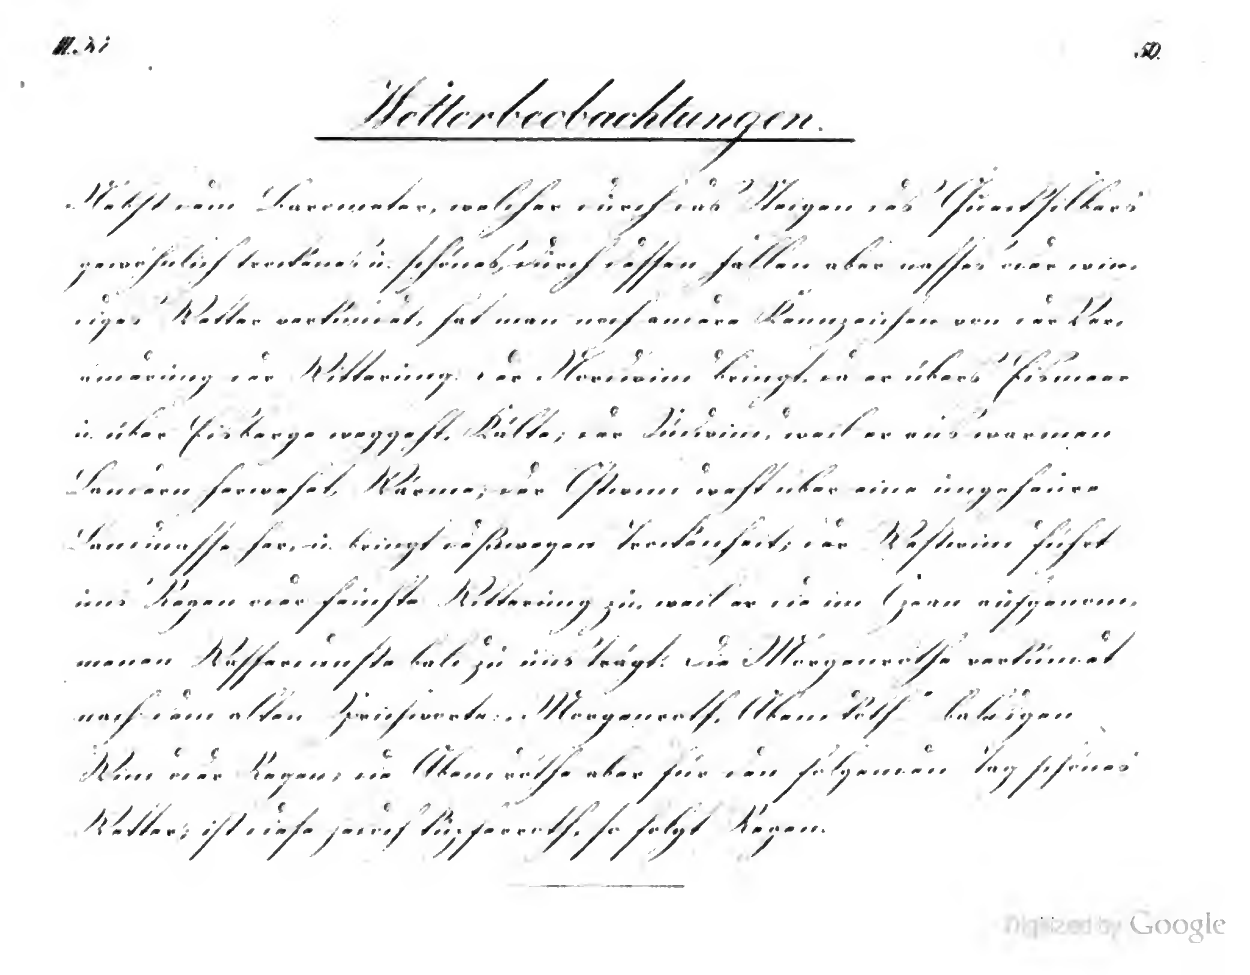 III. 
50.
Wetterbeobachtungen.
Nebst dem Barometer, welcher durch das Steigen des Quecksilbers
gewöhnlich trockenes u. schönes, durch dessen Fallen aber nasses oder win-
diges Wetter verkündet, hat man noch andere Kennzeichen von der Ver-
änderung der Witterung. Der Nordwind bringt, da er übers Eismeer
u. über Eisberge weggeht, Kälte; der Südwind, weil er aus warmen
Ländern herwehet, Wärme; der Ostwind weht über eine ungeheure
Landmasse her, u. bringt deßwegen Trockenheit; der Westwind führt
uns Regen oder feuchte Witterung zu, weil er die im Ozean aufgenom-
menen Wasserdünste bald zu uns trägt. Die Morgenröthe verkündet
nach dem alten Sprichworte: „Morgenroth, Abend Koth" baldigen
Wind oder Regen; die Abendröthe aber für den folgenden Tag schönes
Wetter; ist diese jedoch kupferroth, so folgt Regen.
Digitized by Google